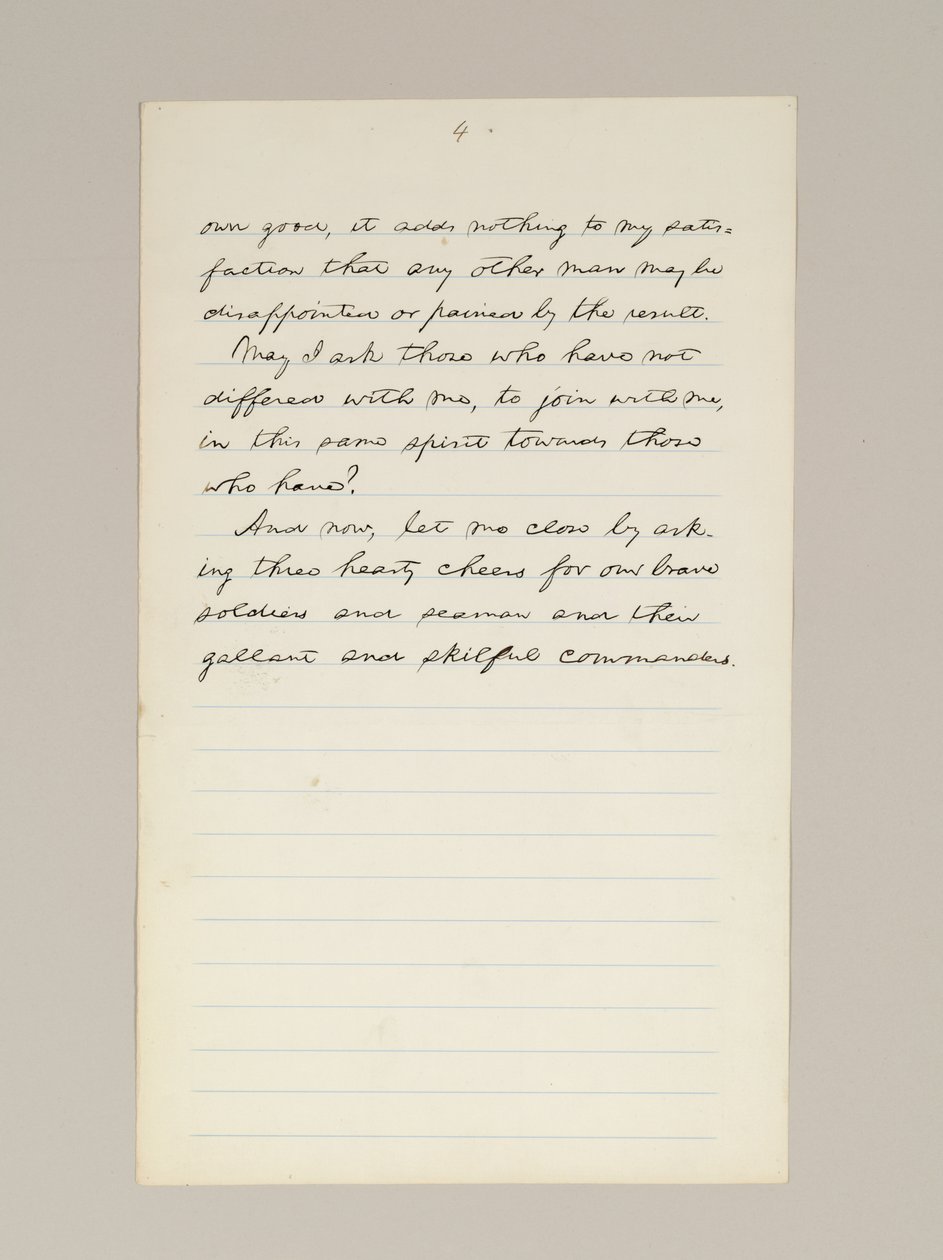 4
own good, it adds nothing to my satis=
faction that any other man may be
disappointed or pained by the result.
May I ask those who have not
differed with me, to join with me,
in this same spirit towards those
who have?
And now, let me close by ask-
ing three hearty cheers for our brave
soldiers and seaman and their
gallant and skilful commanders.